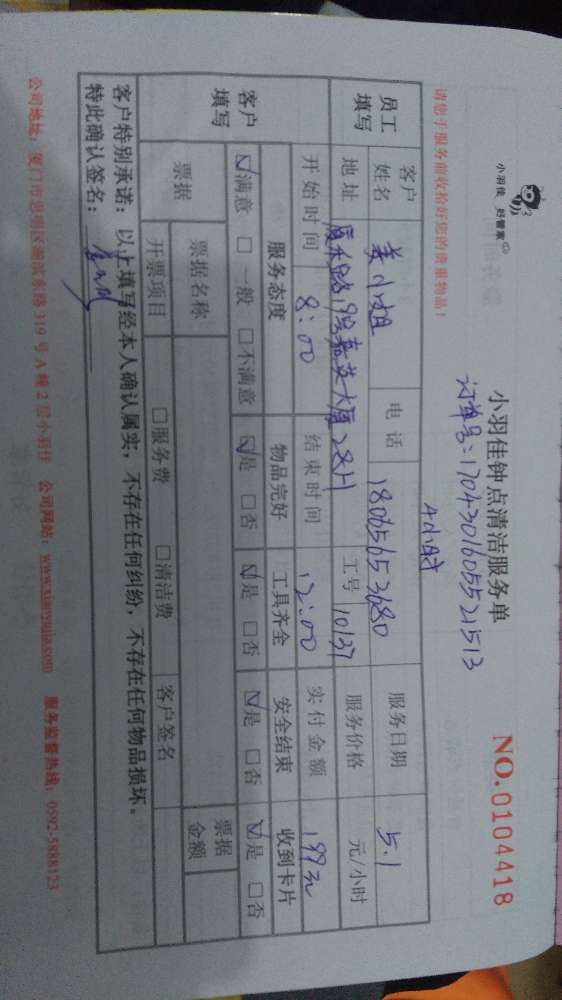 小羽佳 好管家
小羽佳钟点清洁服务单
NO.0104418
订单号:1704301605521513
请您于服务前收拾好您的贵重物品!
4小时
员工填写 客户姓名 姜小姐 电话 18065653680 服务日期 5.1
地址 厦禾路 嘉英大厦 工号 10137 服务价格 元/小时
开始时间 8:00 结束时间 12:00 实付金额 199元
客户填写 服务态度 物品完好 工具齐全 安全结束 收到卡片
☑满意 □一般 □不满意 ☑是 □否 ☑是 □否 ☑是 □否 ☑是 □否
票据 票据名称 票据金额
开票项目 □服务费 □清洁费 客户签名
客户特别承诺:以上填写经本人确认属实,不存在任何纠纷,不存在任何物品损坏。
特此确认签名:
公司地址:厦门市思明区湖滨东路319号A幢2层小羽佳 公司网站:www.xiaoyujia.com 服务监督热线:0592-5888123